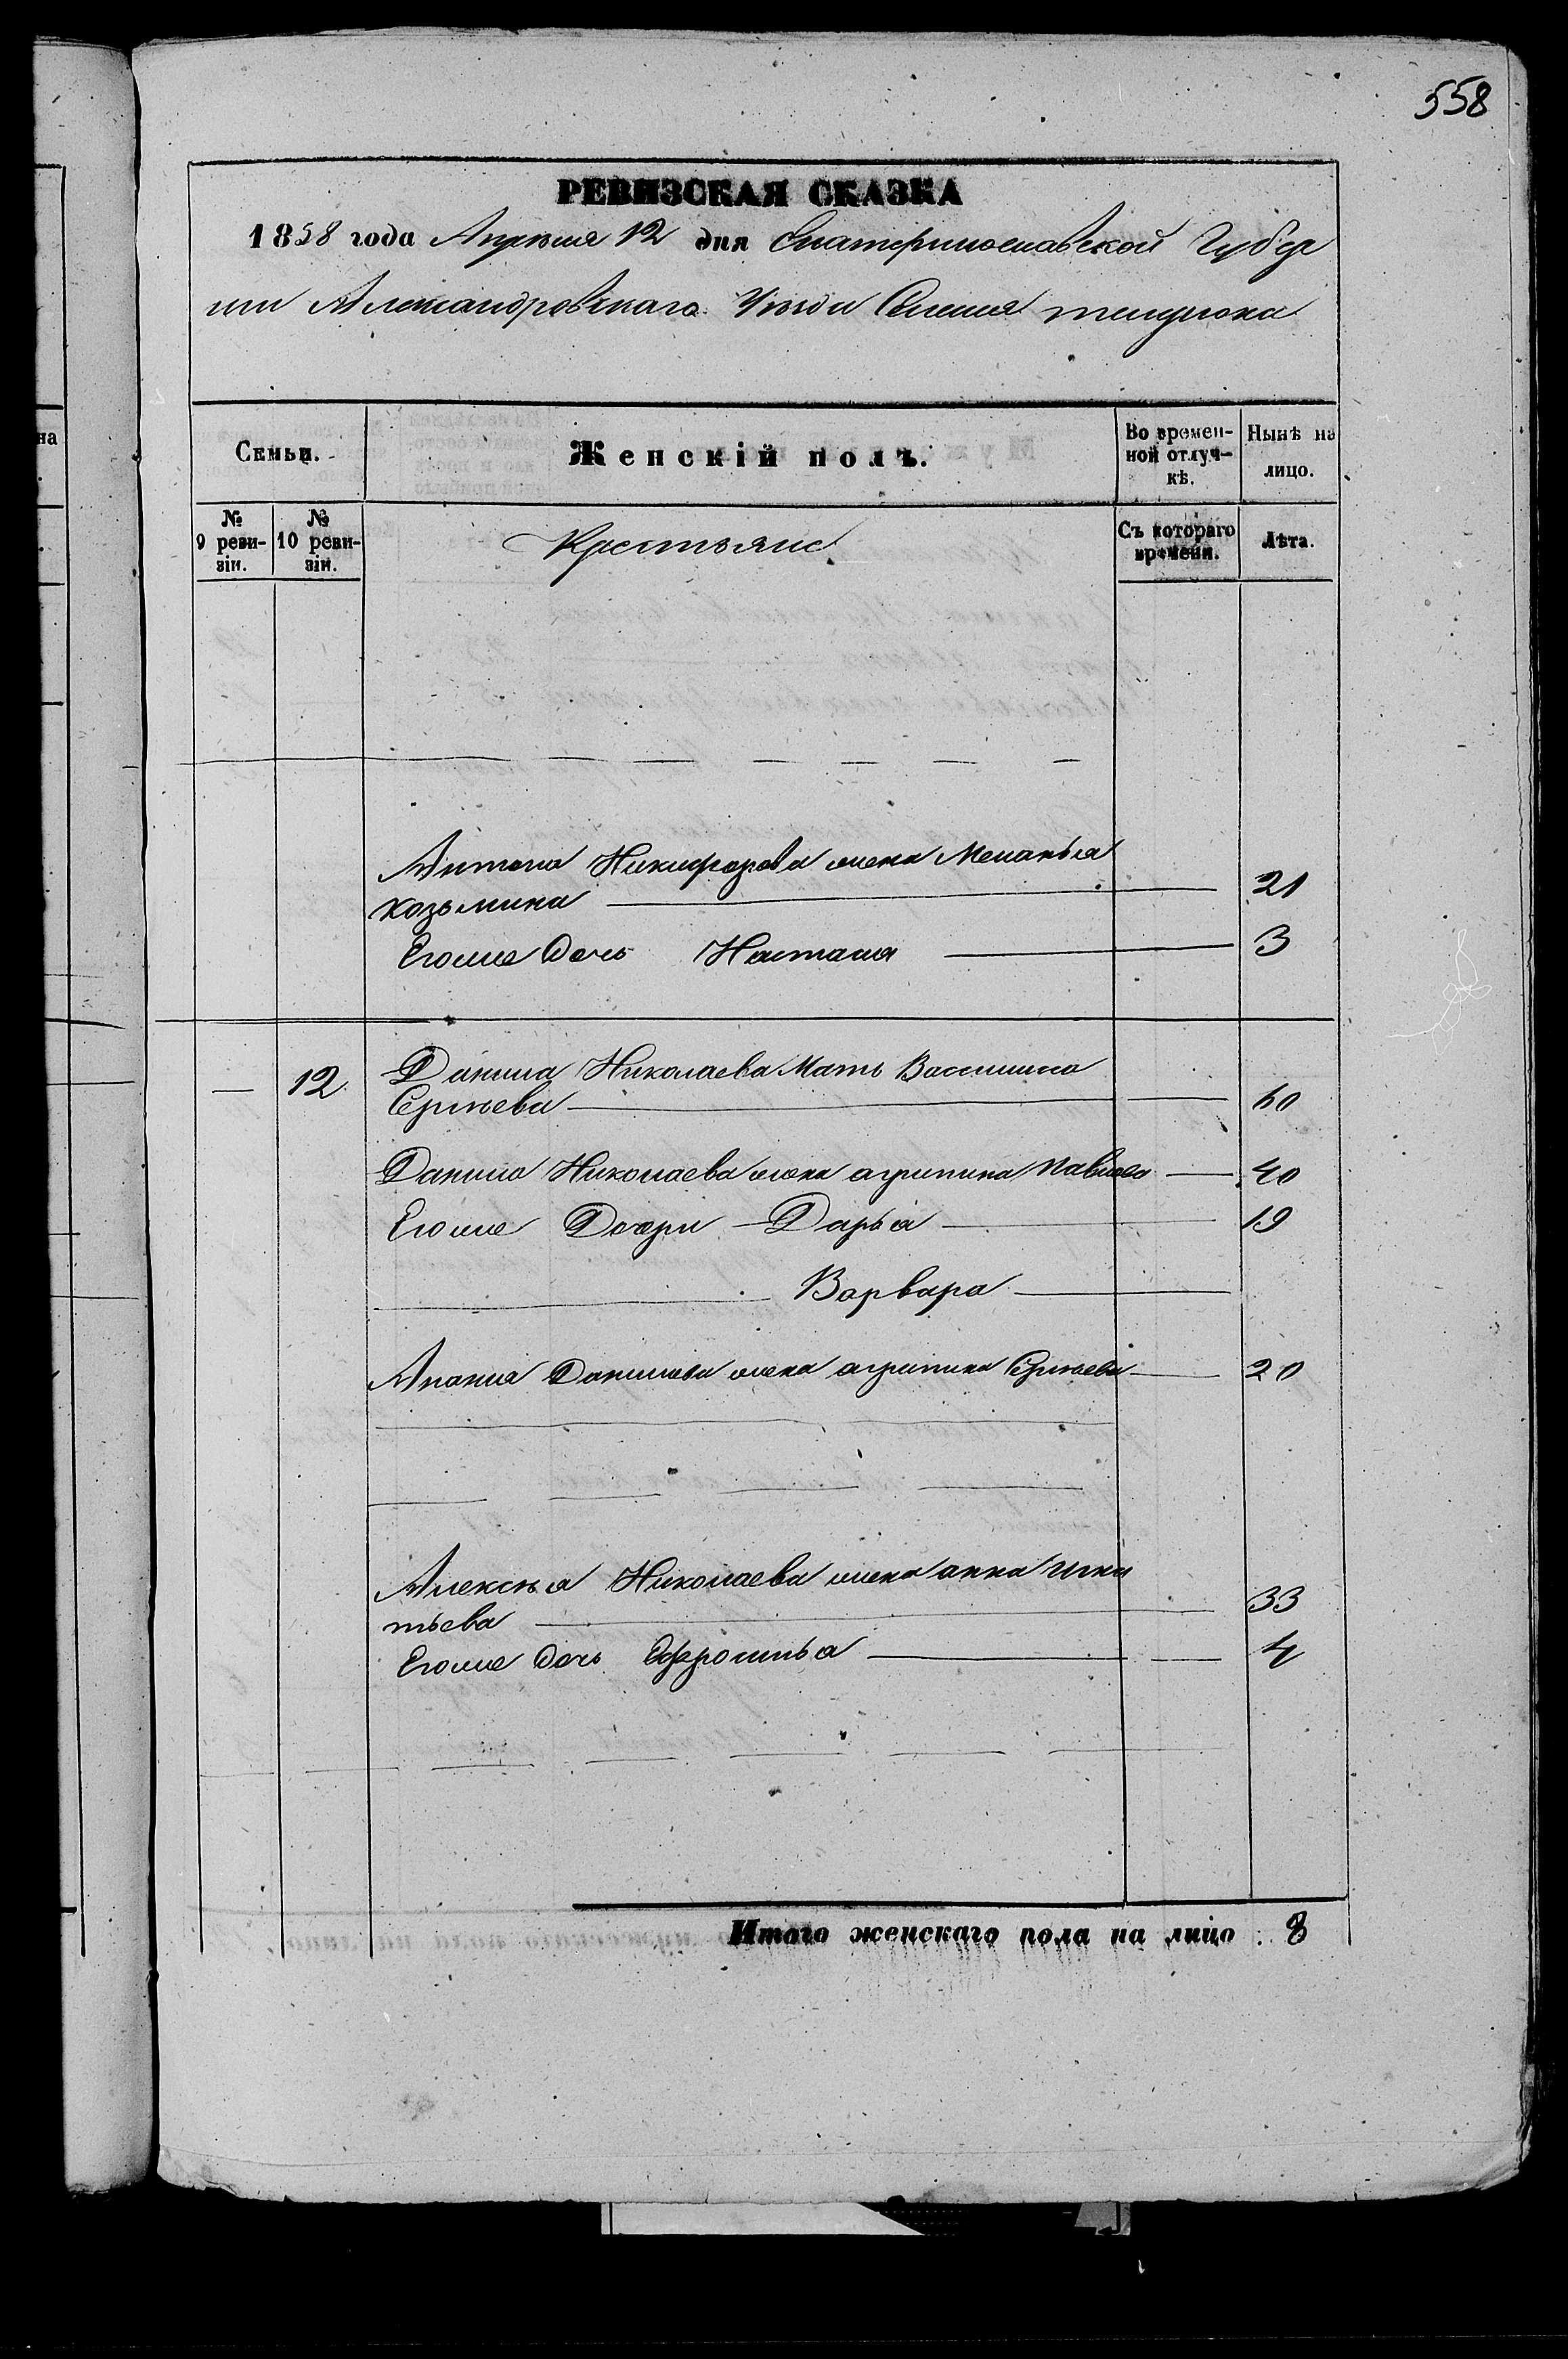 558
РЕВИЗСКАЯ СКАЗКА
1858 года Апреля 12 дня Екатеринославской Губер
нии Александровского Уезда Селения
Семьи. Женскій полъ. Во времен- Нынѣ на
ной отлуч- лицо.
кѣ.
№ № Крестьяне Съ котораго Лѣта.
9 реви- 10 реви- времени.
зіи. зіи.
Антона Никифорова жена Меланья
Козьмина 21
Егоже дочь Наталия 3
12 Данила Николаева Мать Василиса
Сергѣева 60
Данила Николаева жена агрипина Павлова 40
Егоже Дочери Дарья 19
Варвара
Анания Данилова жена агрипина Сергѣева 20
Алексѣя Николаева жена анна Игна
тьева 33
Егоже дочь Ефросинья 4
Итого женскаго пола на лицо 8
на